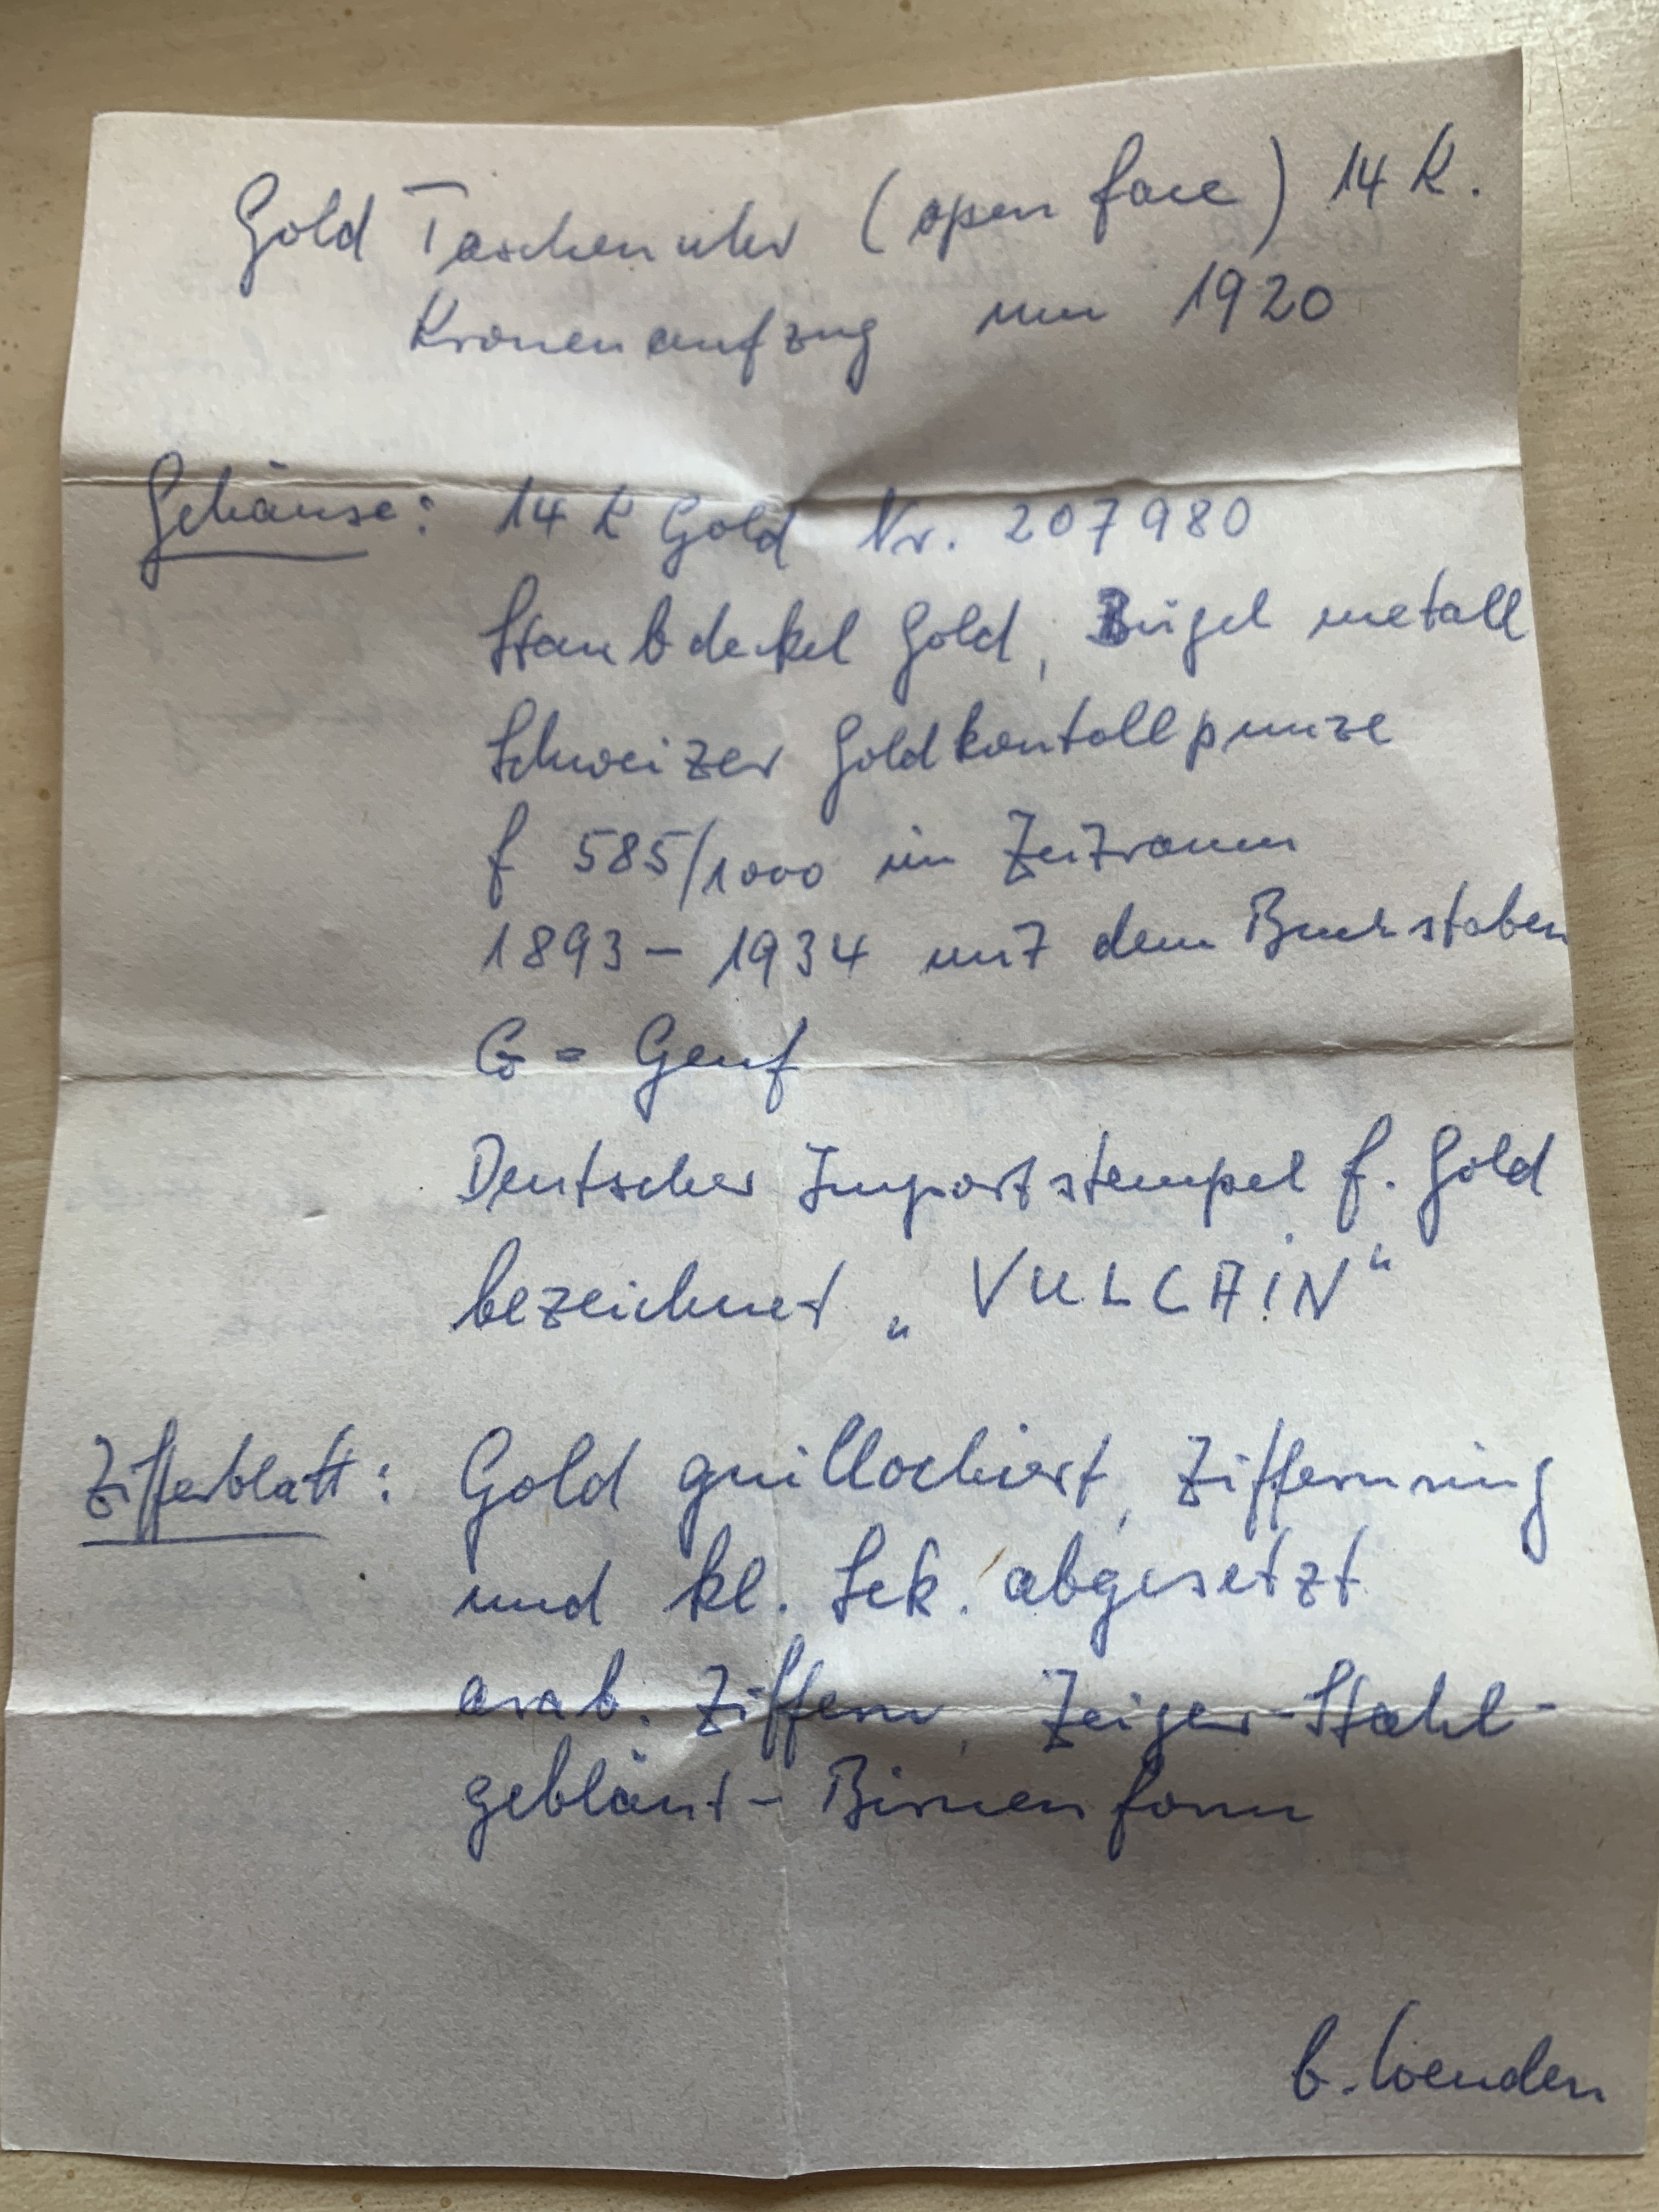 Gold Taschenuhr (open face) 14 K.
Kronenaufzug um 1920
Gehäuse: 14 K Gold Nr. 207980
Staubdeckel Gold, Bügel metall
Schweizer Goldkontollpunze
f 585/1000 im Zeitraum
1893 – 1934 mit dem Buchstaben
G = Genf
Deutscher Importstempel f. Gold
bezeichnet „VULCAIN“
Zifferblatt: Gold guillochiert, Ziffernring
und kl. Sek. abgesetzt
arab. Ziffern, Zeiger-Stahl-
gebläut – Birnenform
b. wenden